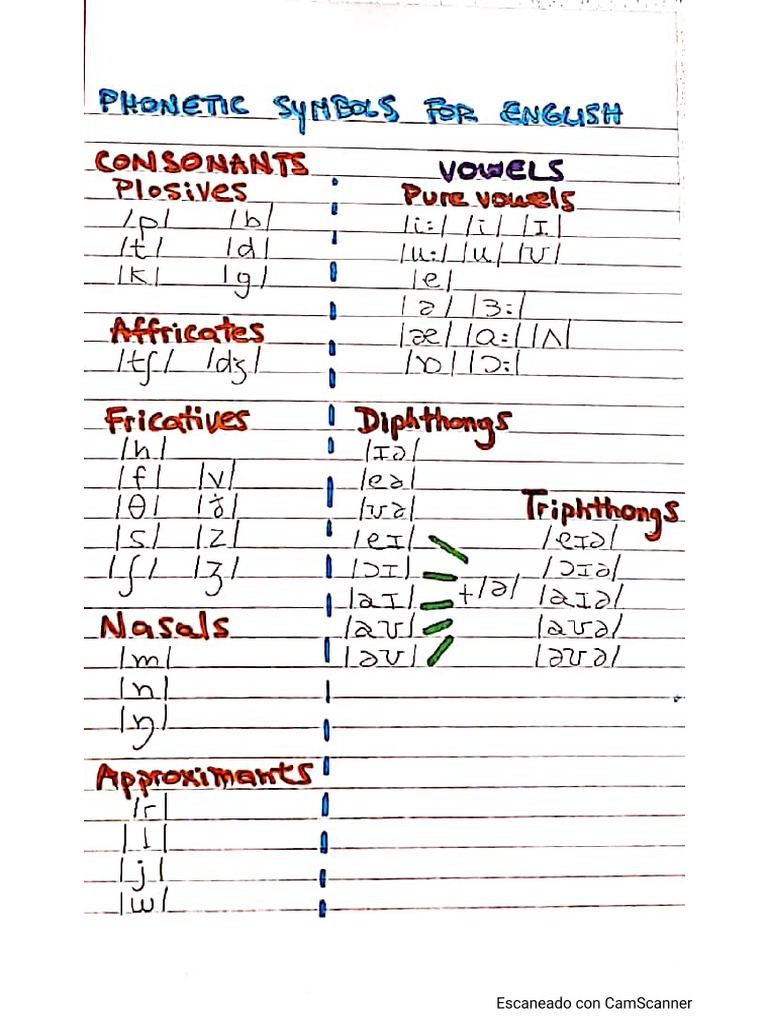 PHONETIC SYMBOLS FOR ENGLISH
CONSONANTS
Plosives
/p/ /b/
/t/ /d/
/k/ /g/
Affricates
/tʃ/ /dʒ/
Fricatives
/h/
/f/ /v/
/θ/ /ð/
/s/ /z/
/ʃ/ /ʒ/
Nasals
/m/
/n/
/ŋ/
Approximants
/r/
/l/
/j/
/w/
VOWELS
Pure vowels
/i:/ /i/ /ɪ/
/u:/ /u/ /ʊ/
/e/
/ə/ /ɜ:/
/æ/ /ɑ:/ /ʌ/
/ɒ/ /ɔ:/
Diphthongs
/ɪə/
/eə/
/ʊə/
/eɪ/
/ɔɪ/
/aɪ/
/aʊ/
/əʊ/
+/ə/
Triphthongs
/eɪə/
/ɔɪə/
/aɪə/
/aʊə/
/əʊə/
Escaneado con CamScanner